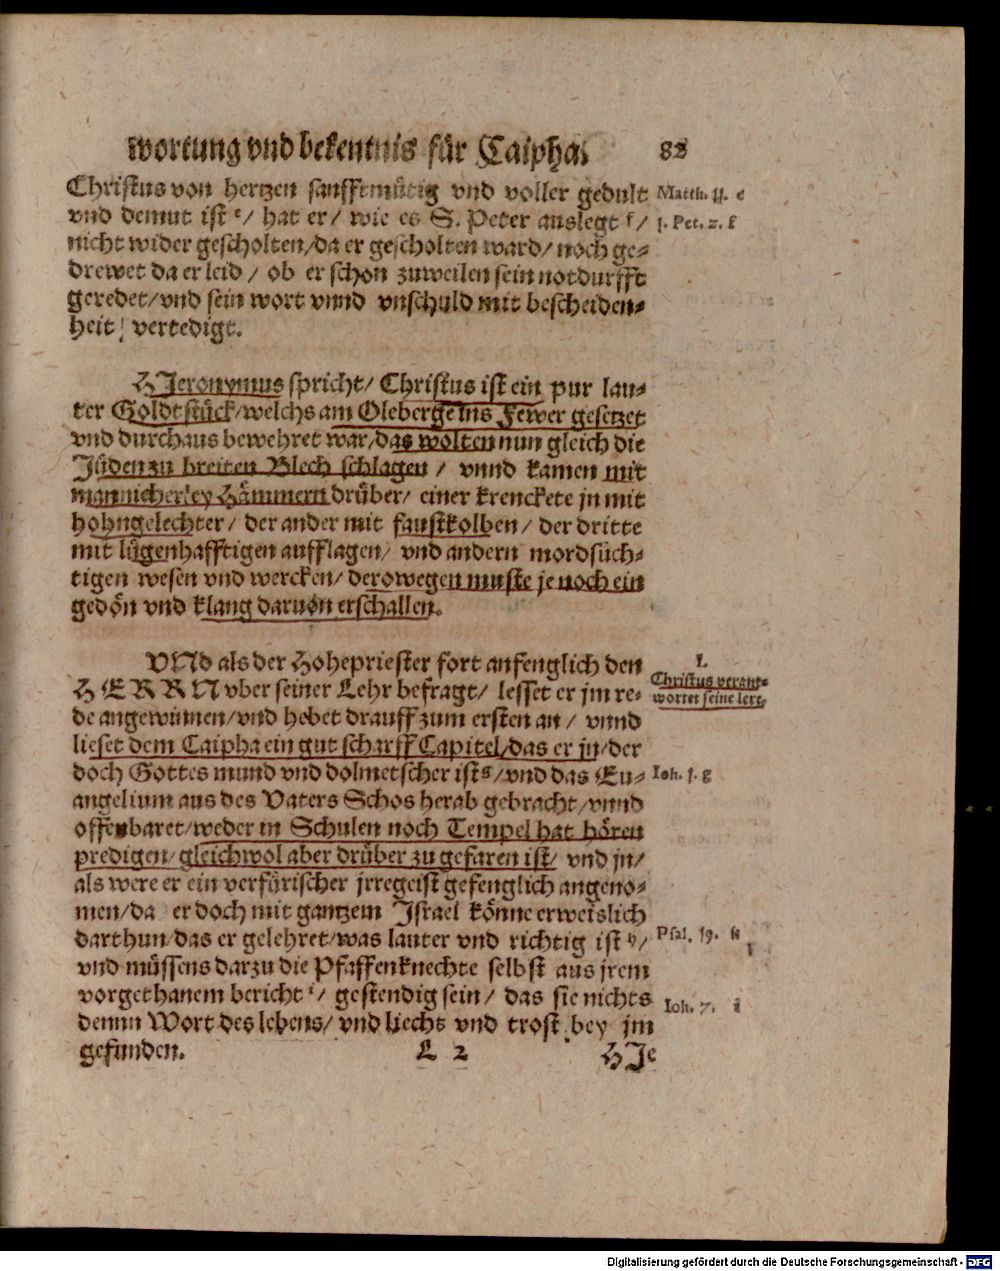 wortung vnd bekentnis für Caipha. 82
Christus von hertzen sanfftmütig vnd voller gedult Matth. 11. e
vnd demut ist e/ hat er/ wie es S. Peter auslegt f/ 1. Pet. 2. f
nicht wider gescholten/da er gescholten ward/ noch ge-
drewet da er leid / ob er schon zuweilen sein notdurfft
geredet/vnd sein wort vnnd vnschuld mit bescheiden-
heit/ vertedigt.
HIeronymus spricht/ Christus ist ein pur lau-
ter Goldtstück/welchs am Oleberge ins Fewer gesetzet
vnd durchaus bewehret war/das wolten nun gleich die
Jüden zu breiten Blech schlagen / vnnd kamen mit
mannicherley Hämmern drüber/ einer krenckete jn mit
hohngelechter/ der ander mit faustkolben/ der dritte
mit lügenhafftigen aufflagen/ vnd andern mordsüch-
tigen wesen vnd wercken/ derowegen muste je noch ein
gedön vnd klang daruon erschallen.
VNd als der Hohepriester fort anfenglich den
HERRN vber seiner Lehr befragt/ lesset er jm re-
de angewinnen/vnd hebet drauff zum ersten an / vnnd
lieset dem Caipha ein gut scharff Capitel/das er jn/der
doch Gottes mund vnd dolmetscher ist g/vnd das Eu-
angelium aus des Vaters Schos herab gebracht/vnnd
offenbaret/weder in Schulen noch Tempel hat hören
predigen/gleichwol aber drüber zu gefaren ist/ vnd jn/
als were er ein verfürischer jrregeist gefenglich angeno-
men/da er doch mit gantzem Israel könne erweislich
darthun/das er gelehret/was lauter vnd richtig ist h/
vnd müssens darzu die Pfaffenknechte selbst aus jrem
vorgethanem bericht i/ gestendig sein/ das sie nichts
denn Wort des lebens/ vnd liechts vnd trost bey jm
gefunden.
L 2 HIe
1.
Christus verant-
wortet seine lere.
Ioh. 1. g
Psal. 19. h
Ioh. 7. i
Digitalisierung gefördert durch die Deutsche Forschungsgemeinschaft - DFG